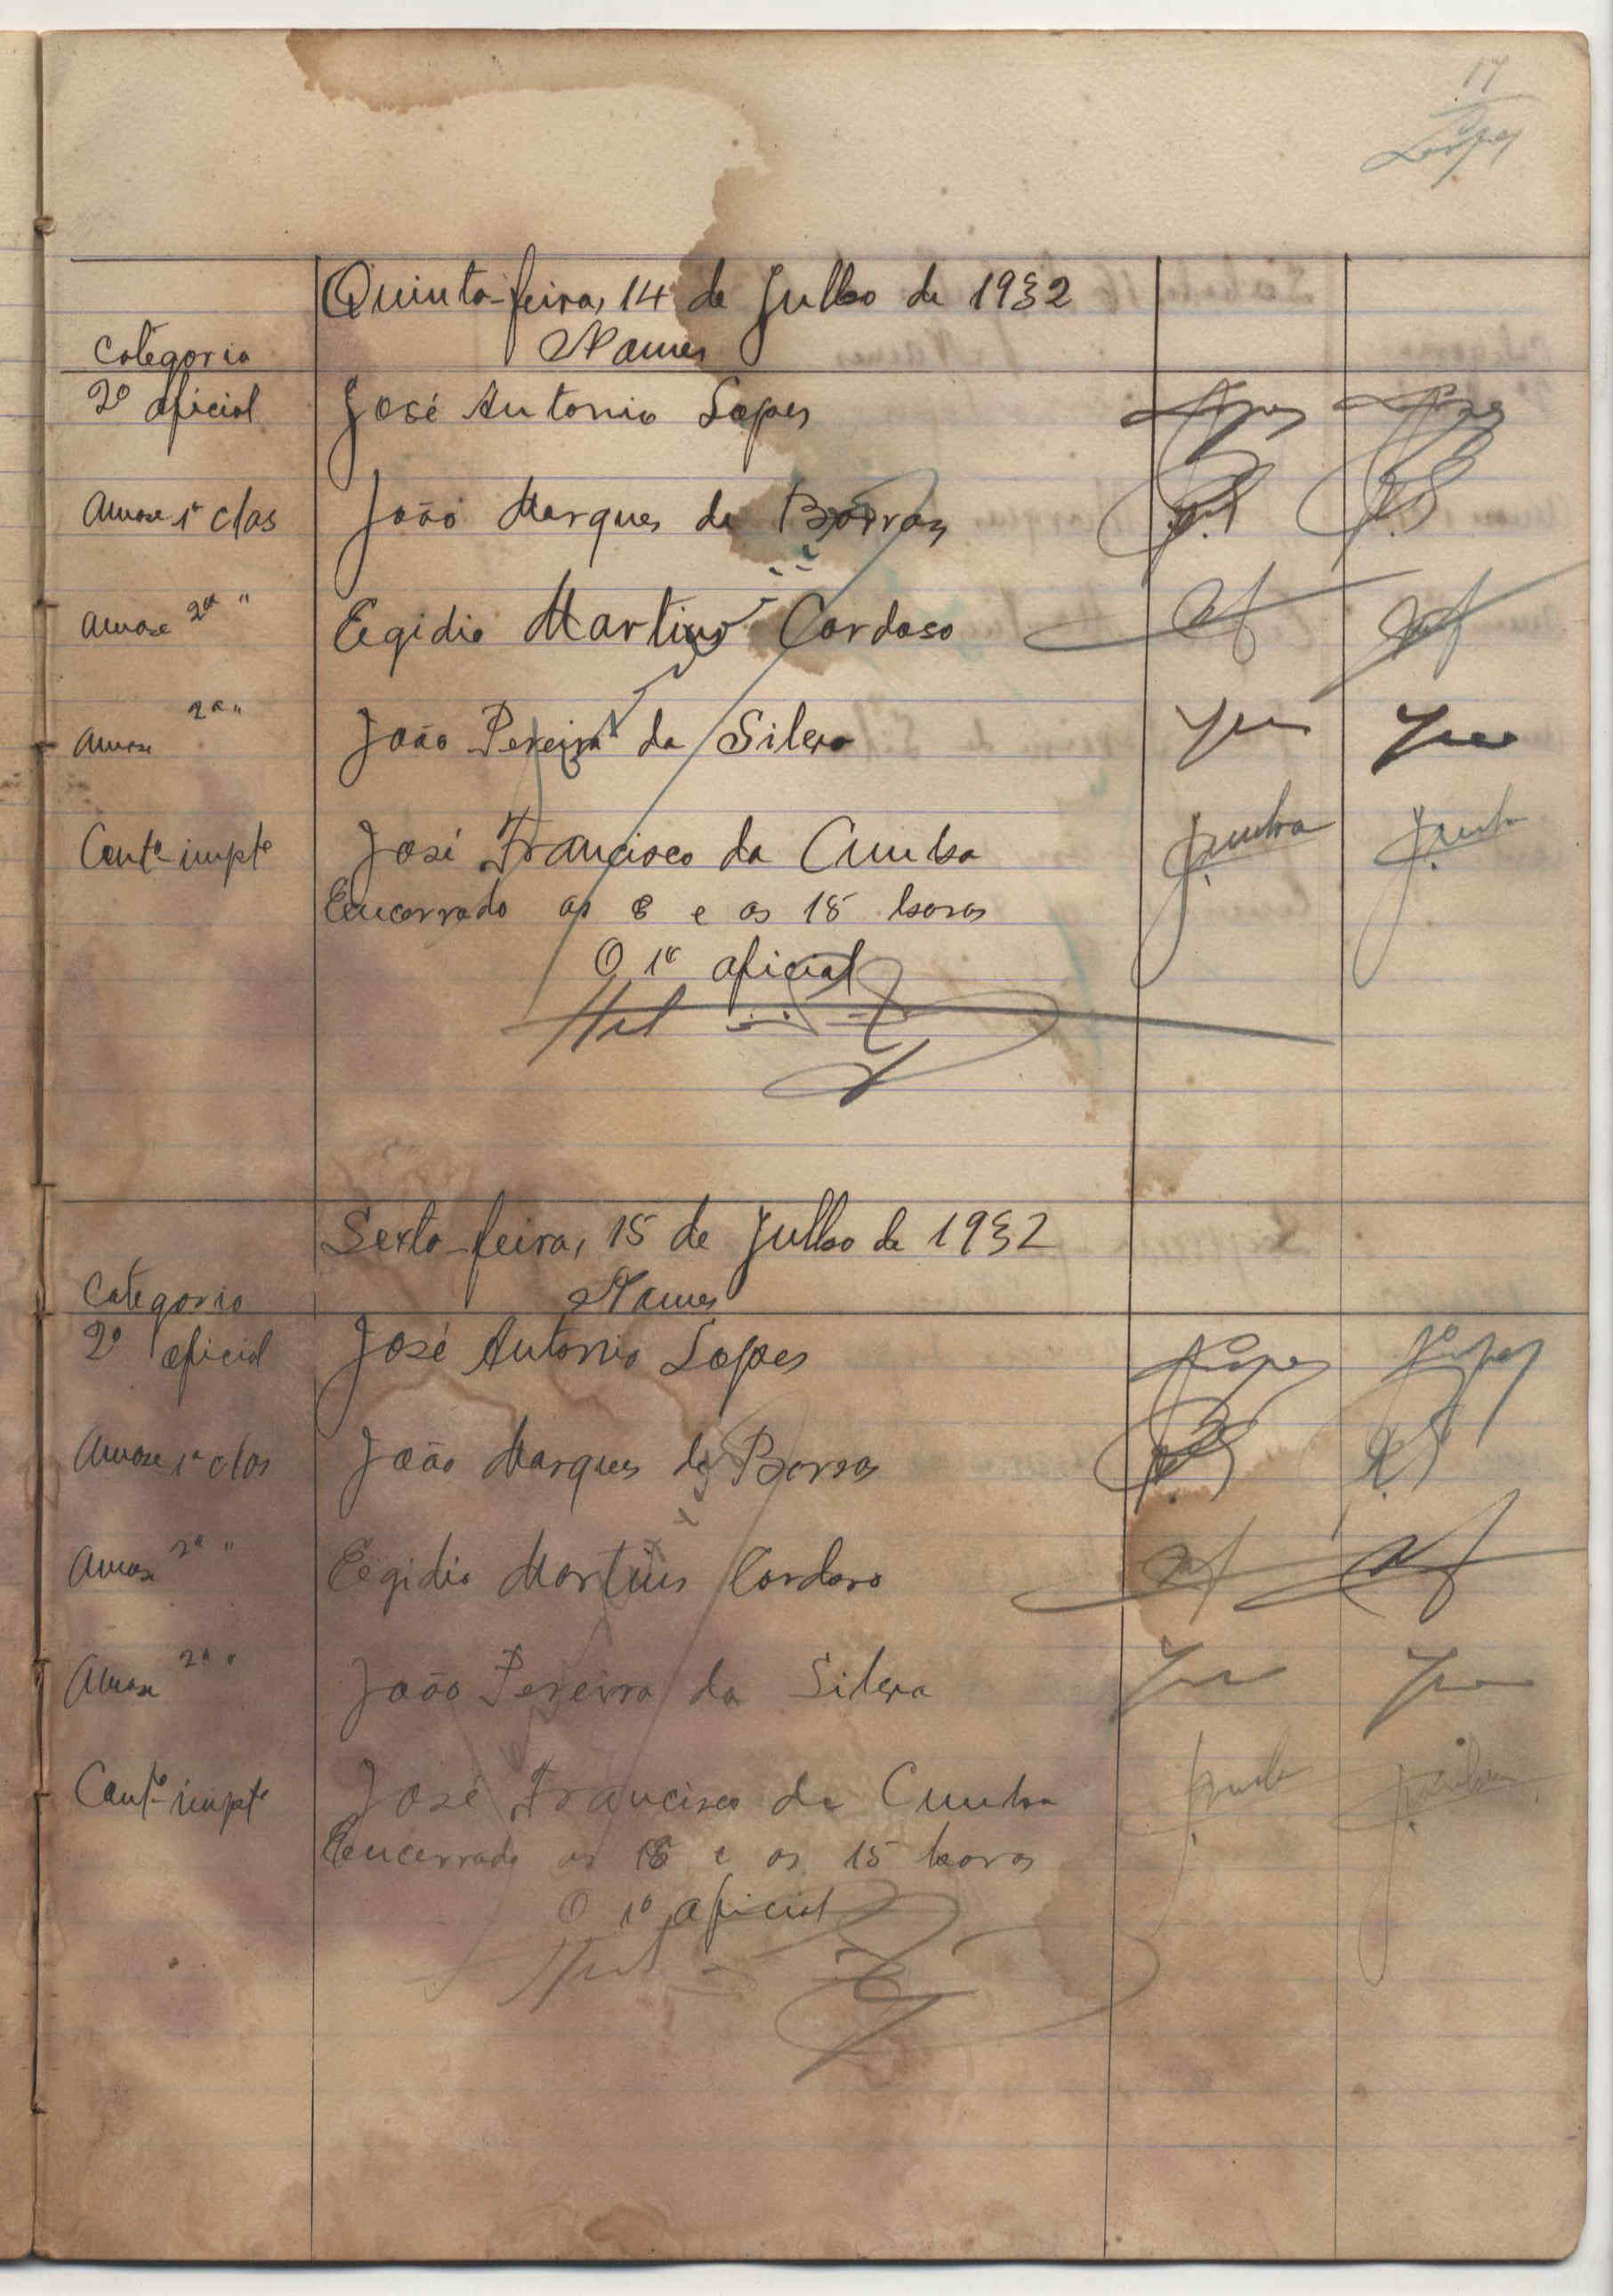 17
Lopes
Quinta-feira, 14 de Julho de 1932
Categoria Nomes
2º oficial José Antonio Lopes Lopes Lopes
1ª clas João Marques de Barros
2ª " Egidio Martins Cardoso
2ª " João Pereira da Silva
Contº impte José Francisco da Cunha JCunha JCunha
Encerrado as 8 e as 15 horas
O 1º oficial
Sexta-feira, 15 de Julho de 1932
Categoria Nomes
2º oficial José Antonio Lopes Lopes Lopes
1ª clas João Marques de Barros
2ª " Egidio Martins Cardoso
2ª " João Pereira da Silva
Contº impte José Francisco da Cunha
Encerrado as 8 e as 15 horas
O 1º oficial